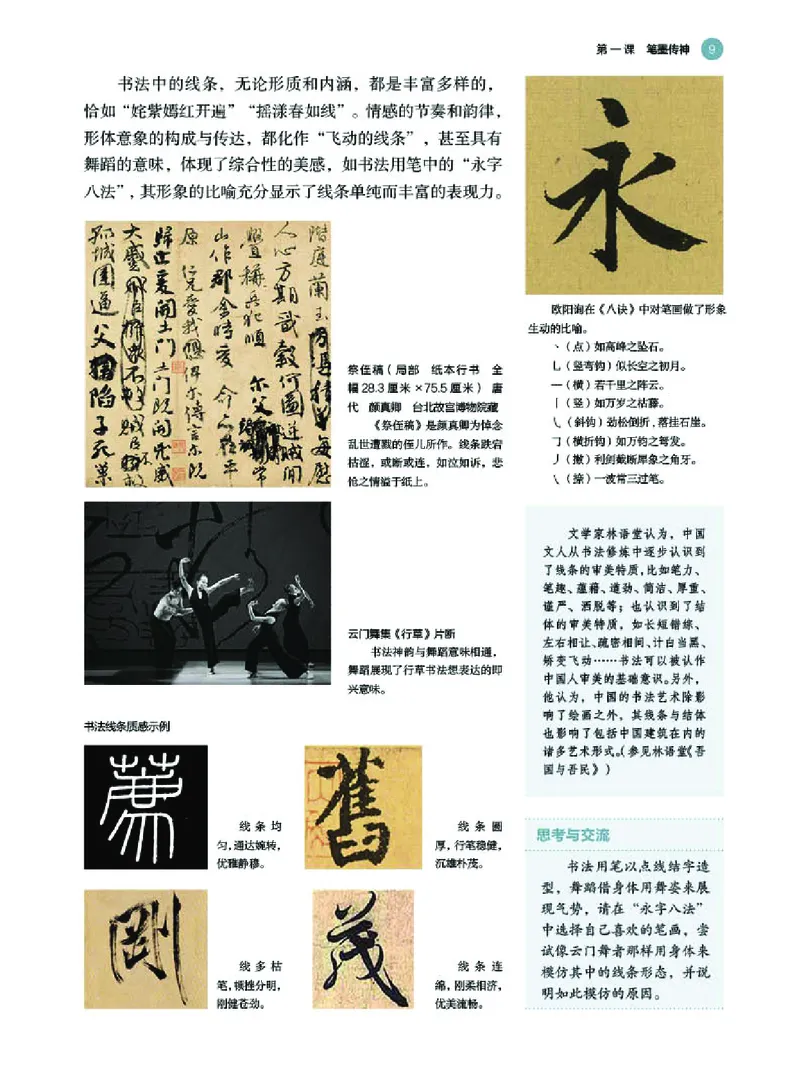 第一课 笔墨传神 9
书法中的线条，无论形质和内涵，都是丰富多样的，
恰如“姹紫嫣红开遍”“摇漾春如线”。情感的节奏和韵律，
形体意象的构成与传达，都化作“飞动的线条”，甚至具有
舞蹈的意味，体现了综合性的美感，如书法用笔中的“永字
八法”，其形象的比喻充分显示了线条单纯而丰富的表现力。
阶庭兰玉
人心方期戬谷何图逆贼间
衅称兵犯顺 尔父
山作郡余时受命亦在平
原 仁兄爱我俾尔传言尔既
归止爰开土门土门既开凶威
大蹙
孤城围逼父陷子死巢
祭侄稿（局部 纸本行书 全
幅28.3厘米×75.5厘米） 唐
代 颜真卿 台北故宫博物院藏
《祭侄稿》是颜真卿为悼念
乱世遭戮的侄儿所作。线条跌宕
枯涩，或断或连，如泣如诉，悲
怆之情溢于纸上。
云门舞集《行草》片断
书法神韵与舞蹈意味相通，
舞蹈展现了行草书法想表达的即
兴意味。
书法线条质感示例
线条均
匀，通达婉转，
优雅静穆。
舊
线条圆
厚，行笔稳健，
沉雄朴茂。
剛
线多枯
笔，顿挫分明，
刚健苍劲。
茂
线条连
绵，刚柔相济，
优美流畅。
永
欧阳询在《八诀》中对笔画做了形象
生动的比喻。
丶（点）如高峰之坠石。
乚（竖弯钩）似长空之初月。
一（横）若千里之阵云。
丨（竖）如万岁之枯藤。
㇂（斜钩）劲松倒折，落挂石崖。
㇆（横折钩）如万钧之弩发。
丿（撇）利剑截断犀象之角牙。
㇏（捺）一波常三过笔。
文学家林语堂认为，中国
文人从书法修炼中逐步认识到
了线条的审美特质，比如笔力、
笔趣、蕴藉、遒劲、简洁、厚重、
谨严、洒脱等；也认识到了结
体的审美特质，如长短错综、
左右相让、疏密相间、计白当黑、
矫变飞动……书法可以被认作
中国人审美的基础意识。另外，
他认为，中国的书法艺术除影
响了绘画之外，其线条与结体
也影响了包括中国建筑在内的
诸多艺术形式。（参见林语堂《吾
国与吾民》）
思考与交流
书法用笔以点线结字造
型，舞蹈借身体用舞姿来展
现气势，请在“永字八法”
中选择自己喜欢的笔画，尝
试像云门舞者那样用身体来
模仿其中的线条形态，并说
明如此模仿的原因。